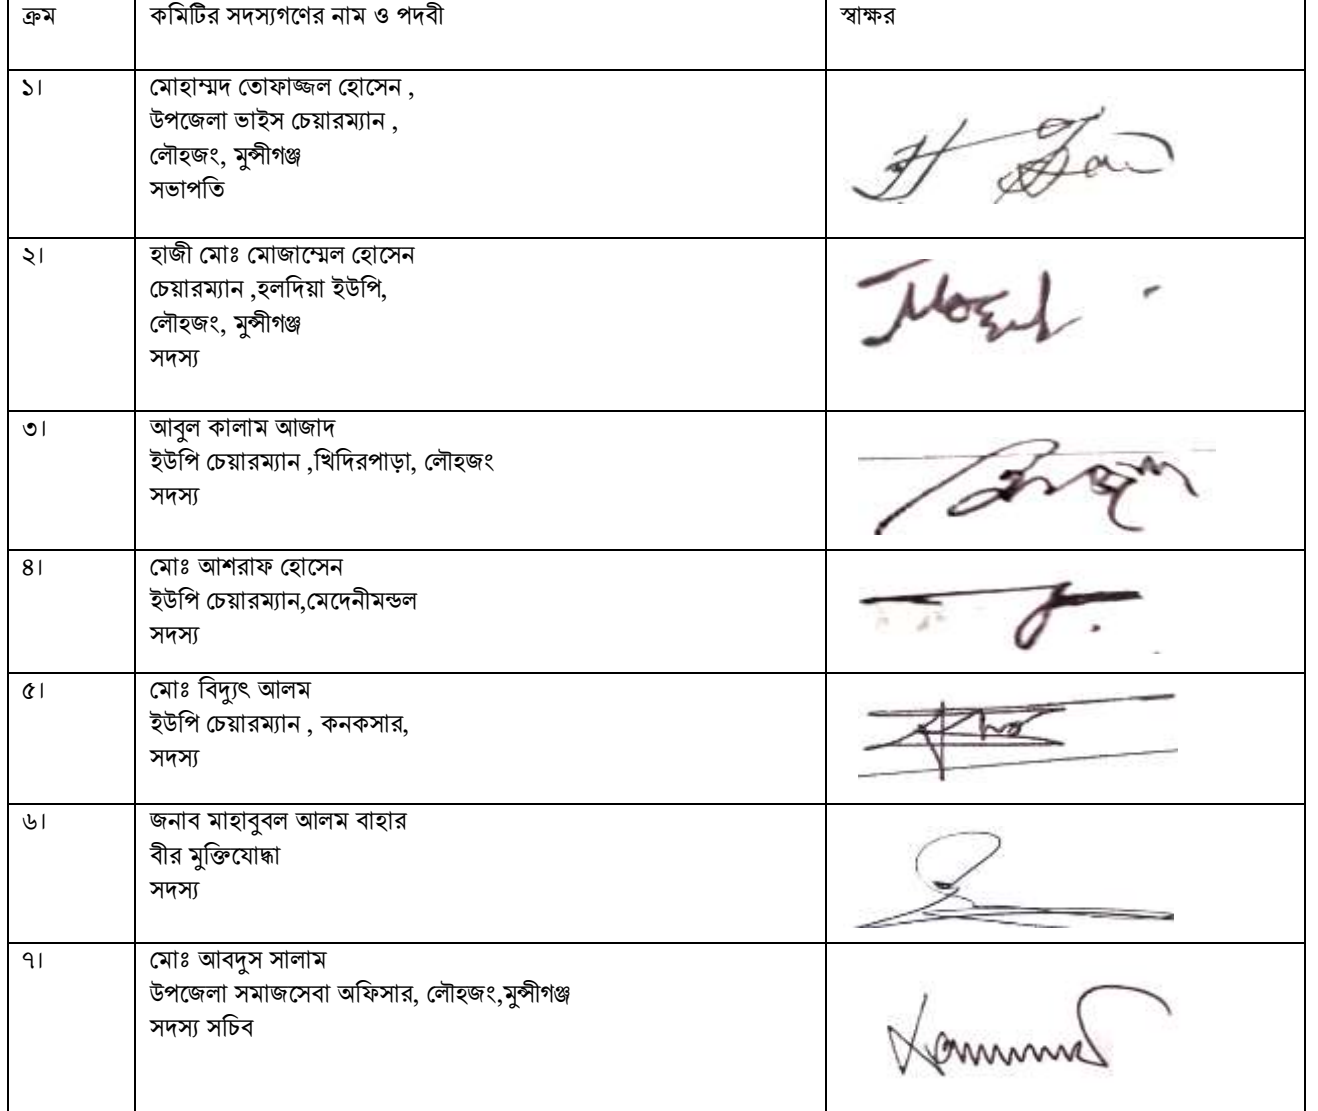 ক্রম কমিটির সদস্যগণের নাম ও পদবী স্বাক্ষর
১। মোহাম্মদ তোফাজ্জল হোসেন ,
উপজেলা ভাইস চেয়ারম্যান ,
লৌহজং, মুন্সীগঞ্জ
সভাপতি
২। হাজী মোঃ মোজাম্মেল হোসেন
চেয়ারম্যান ,হলদিয়া ইউপি,
লৌহজং, মুন্সীগঞ্জ
সদস্য
৩। আবুল কালাম আজাদ
ইউপি চেয়ারম্যান ,খিদিরপাড়া, লৌহজং
সদস্য
৪। মোঃ আশরাফ হোসেন
ইউপি চেয়ারম্যান,মেদেনীমন্ডল
সদস্য
৫। মোঃ বিদ্যুৎ আলম
ইউপি চেয়ারম্যান , কনকসার,
সদস্য
৬। জনাব মাহাবুবল আলম বাহার
বীর মুক্তিযোদ্ধা
সদস্য
৭। মোঃ আবদুস সালাম
উপজেলা সমাজসেবা অফিসার, লৌহজং,মুন্সীগঞ্জ
সদস্য সচিব